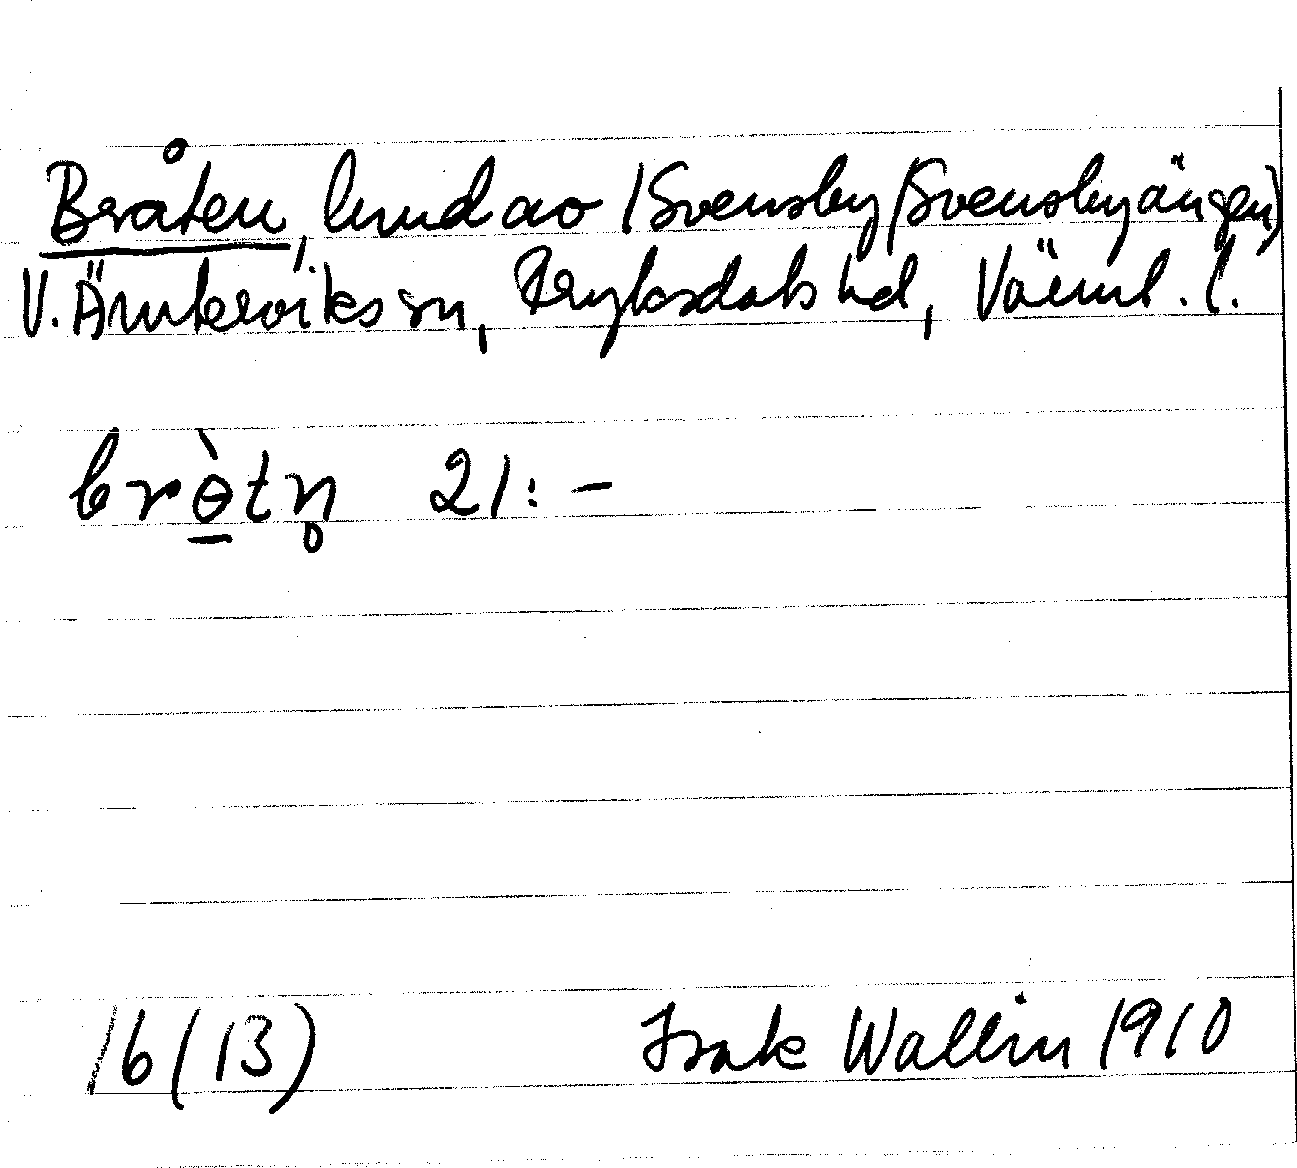 Bråten, hmd av 1 Svensby (Svensbyängen)
V. Ämterviks sn, Fryksdals hd, Värml. l.
brɵ̱̀tn̥ 21: –
16 (13)
Isak Wallin 1910